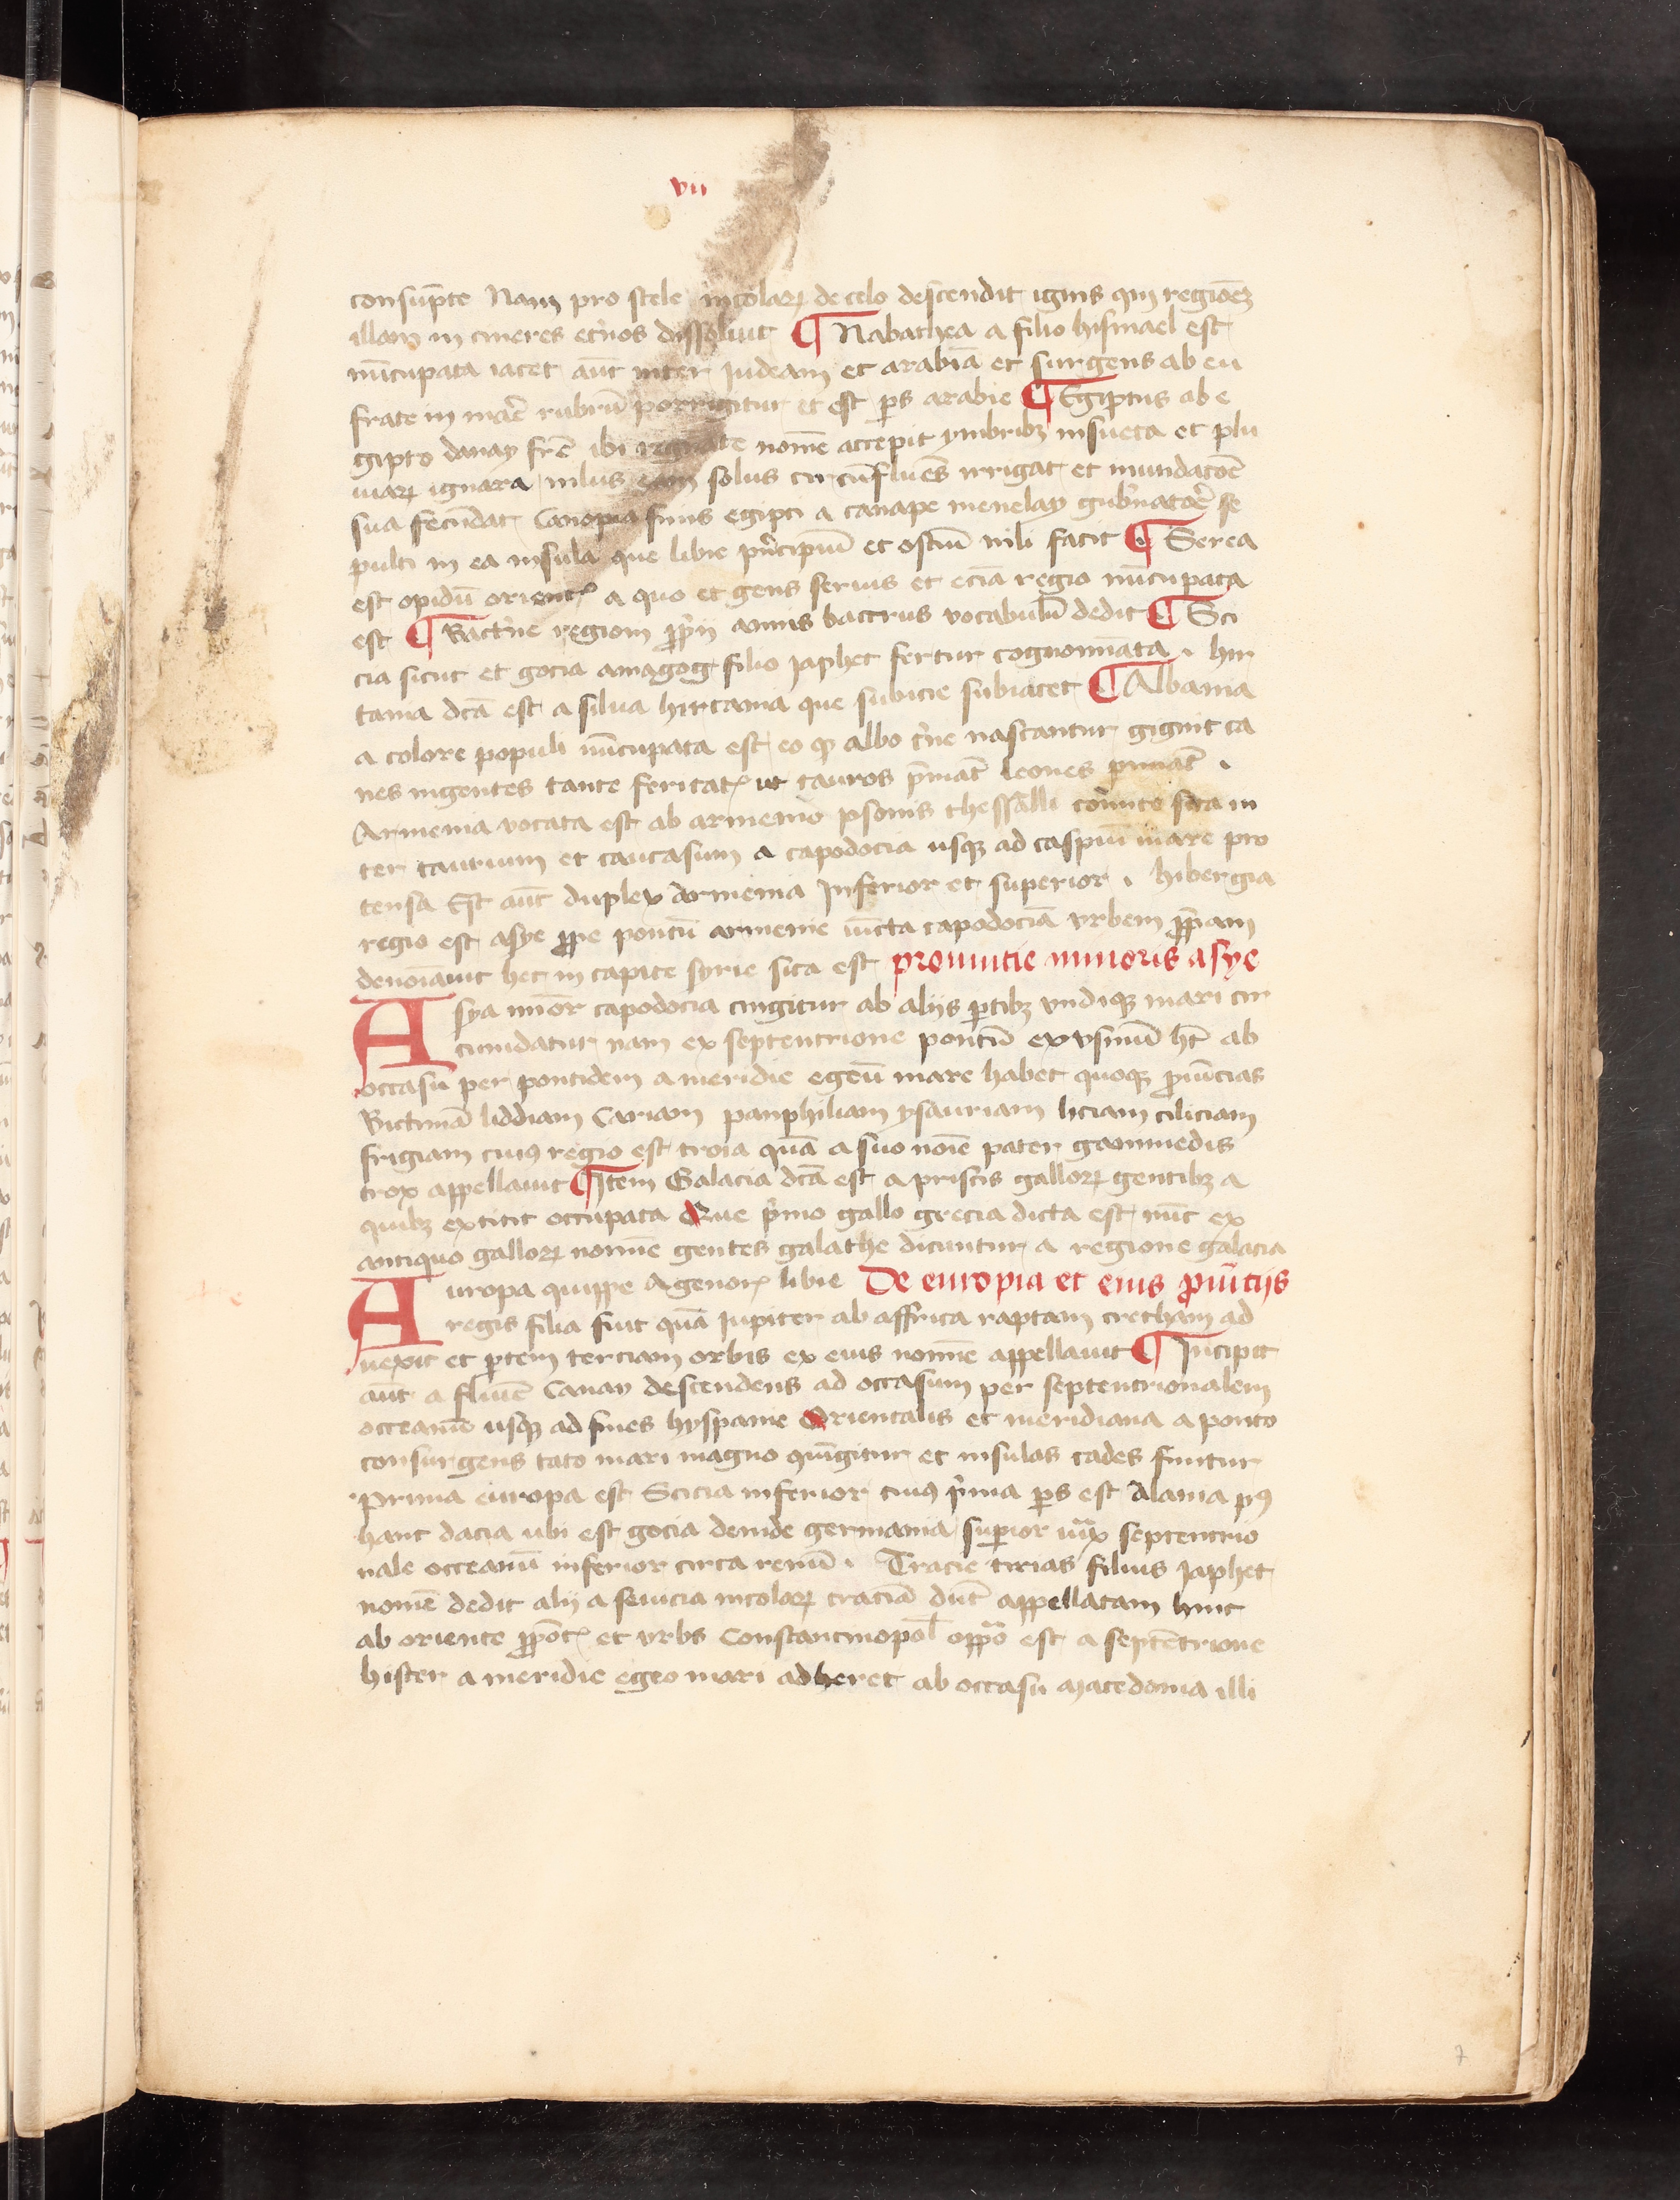 vii
consūpte Nam pro scele incolarꝝ de celo descendit ignis qui regionēꝫ
illam in cineres etͥnos dissoluit ¶ Nabathea a filio hismael est
nūcupata iacet aūt inter Iudeam et arabiā et surgens ab eu
frate in mar̄e rubrū porrigitur et est ꝑs arabie ¶ Egiptus ab e
gipto danay fr̄e ibi regnante nomē accepit ymbribꝫ insueta et plu
uiarꝝ ignara nilus eam solus circūfluēs irrigat et inundacōe
sua fecūdat Canopia finis egipti a canape menelay gubͥnatoēr se
pulti in ea insula que libie pͥncipiū et ostiū nili facit ¶ Serea
est opidū orientꝭ a quo et gens serius et eciā regio nūcupata
est ¶ Bactͥne regioni ꝓpͥij amnis bactrus vocabulū dedit ¶ Sci
cia sicut et gocia amagog filio Japhet fertur cognominata . hir
tania dcā est a silua hircania que subicie subiacet ¶ Albania
a colore populi nūcupata est eo qꝫ albo cͥne nascantur gignit ca
nes ingentes tante feritatꝭ ut tauros p̄māt leones ꝑimāt .
Armenia vocata est ab armenio ipsonis thessalli comite sita in
ter taurium et caucasum a capodocia usqꝫ ad caspiū mare pro
tensa Est aūt duplex Armenia Inferior et superior . hibergia
regio est asye ꝓpe pontū armenie iūcta capodociā vrbem ꝓpͥam
denoīauit hec in capite syrie sita est prouintie minoris asye
Asya minor capodocia cingitur ab alijs ꝑtibꝫ vndiqꝫ mari cir
cumdatur nam ex septentrione pontū exvsinū ht̄ ab
occasu per pontidem a meridie egeū mare habet quoqꝫ ꝓuīcias
Bictiniā liddiam Cariam panphiliam ysauriam liciam ciliciam
frigiam cuiꝰ regio est troia quā a suo noīe pater ganimedis
trox appellauit ¶ Item Galacia dcā est a priscis gallorꝝ gentibꝫ a
quibꝫ extitit occupata Que pͥmo gallo grecia dicta est nūc ex
antiquo gallorꝝ nomīe gentes galathe dicuntur a regione galacia
Auropa quippe Agenorꝭ libie De europia et eius ꝓuīcijs
regis filia fuit quā Iupiter ab affrica raptam cretham ad
uexit et ꝑtem terciam orbis ex eius nomīe appellauit ¶ Incipit
aūt a fluuīe Canay descendens ad occasum per septentrionalem
occeanū usqꝫ ad fines hyspanie Orientalis et meridiana a ponto
consurgens tato mari magno ꝯiūgitur et insulas cades finitur
Prima europa est Scicia inferior cuiꝰ pͥma ꝑs est Alania pꝰ
hanc dacia ubi est gocia deinde germania supior iuxͣ septentrio
nale occeanū inferior circa renū . Tracie tirias filius Japhet
nomē dedit alij a seuicia incolarꝝ traciā dūt appellatam hinc
ab oriente ꝓpōtꝭ et vrbs Constantinopol̄ opp̄oͣ est a septētrione
hister a meridie egeo mari adheret ab occasu Macedonia illi
7